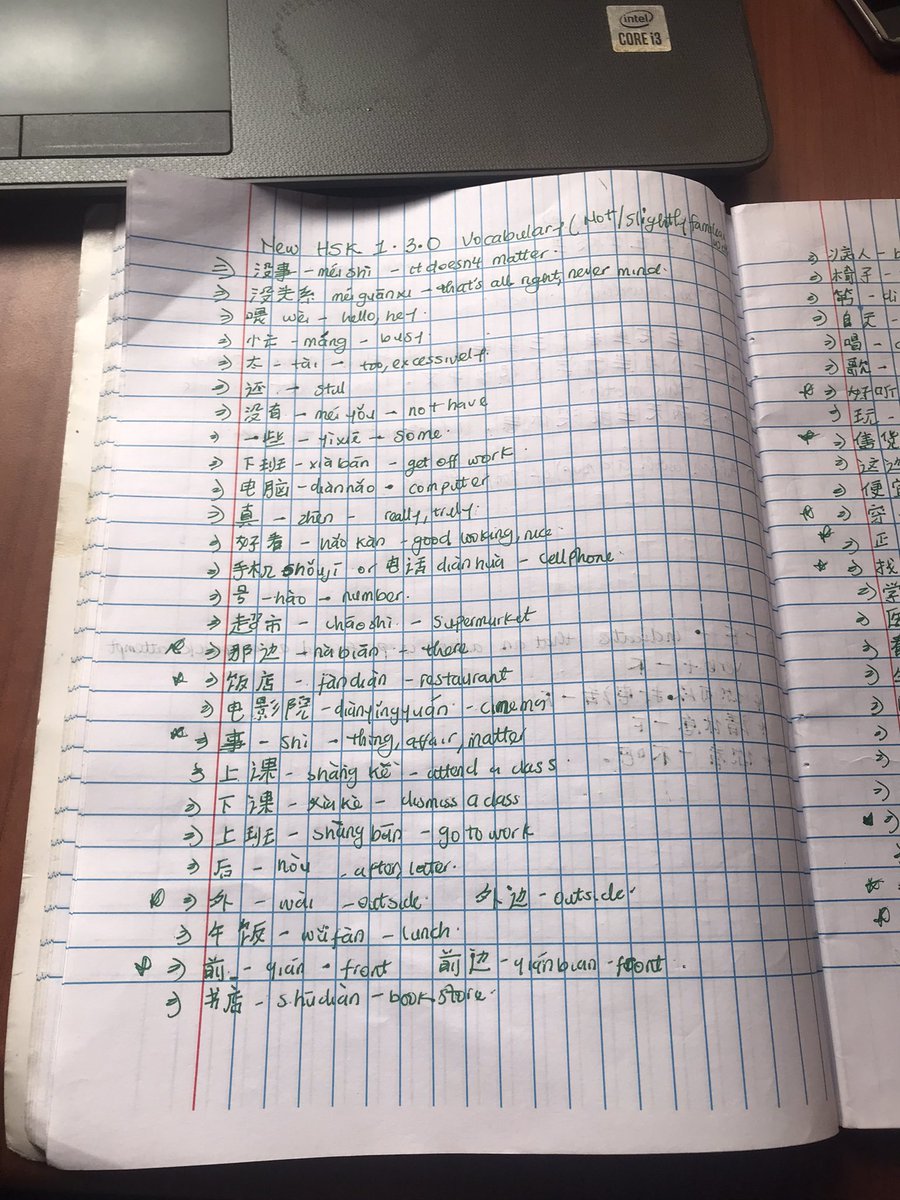 intel
CORE i3
New HSK 1. 3.0 Vocabulary (Not/slightly familiar
⇒ 没事 - méi shì - it doesn't matter.
⇒ 没关系 méi guānxi - that's all right, never mind.
⇒ 喂 wèi - hello, hey.
⇒ 忙 - máng - busy
⇒ 太 - tài - too, excessively.
⇒ 还 - still
⇒ 没有 - méi yǒu - not have
⇒ 一些 - yìxiē - some.
⇒ 下班 - xià bān - get off work
⇒ 电脑 - diànnǎo - computer
⇒ 真 - zhēn - really, truly.
⇒ 好看 - hǎo kàn - good looking, nice.
⇒ 手机 shǒujī or 电话 diàn huà - cellphone.
⇒ 号 - hào - number.
⇒ 超市 - chāoshì - supermarket
⇒ 那边 - nàbiān - there
⇒ 饭店 - fàndiàn - restaurant
⇒ 电影院 - diànyǐngyuàn - cinema
⇒ 事 - shì - thing, affair, matter
⇒ 上课 - shàng kè - attend a class.
⇒ 下课 - xià kè - dismiss a class
⇒ 上班 - shàng bān - go to work
⇒ 后 - hòu - after, later.
⇒ 外 - wài - outside. 外边 - outside.
⇒ 午饭 - wǔ fàn - lunch.
⇒ 前 - qián - front 前边 - qiánbian - front.
⇒ 书店 - shūdiàn - book store.
⇒ 病人 -
⇒ 椅子 -
⇒ 第 - di
⇒ 唱 -
⇒ 歌 -
⇒ 好听
⇒ 玩 -
⇒ 售货
⇒ 这边
⇒ 便宜
⇒ 穿 -
⇒ 正
⇒ 找
⇒ 学
⇒ 医
⇒ 看